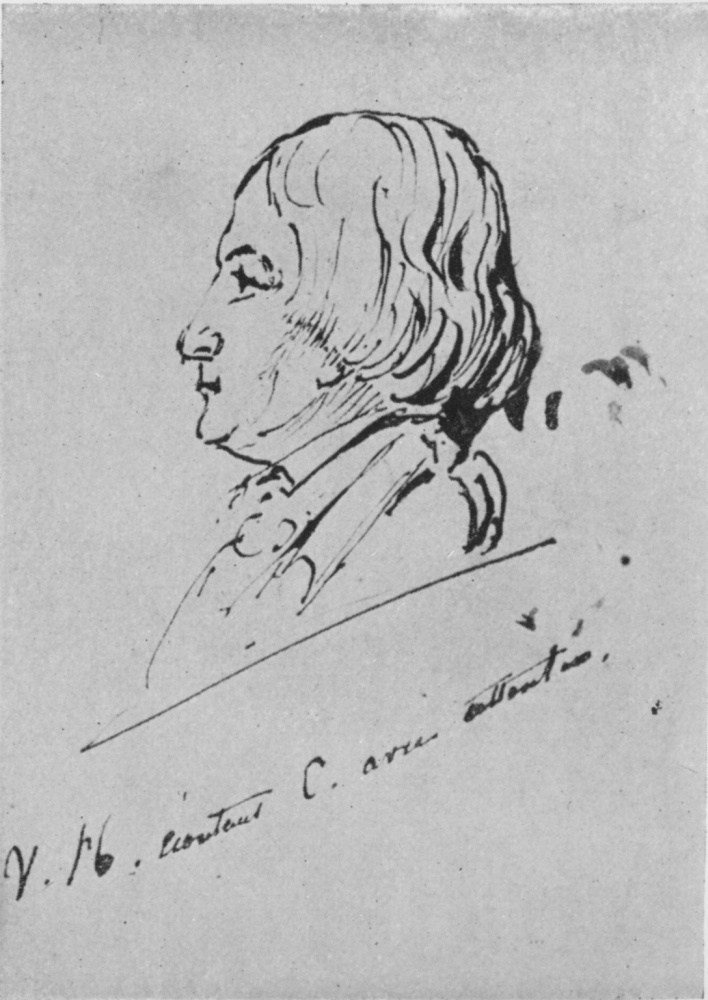 V. H. écoutant C. avec attention.